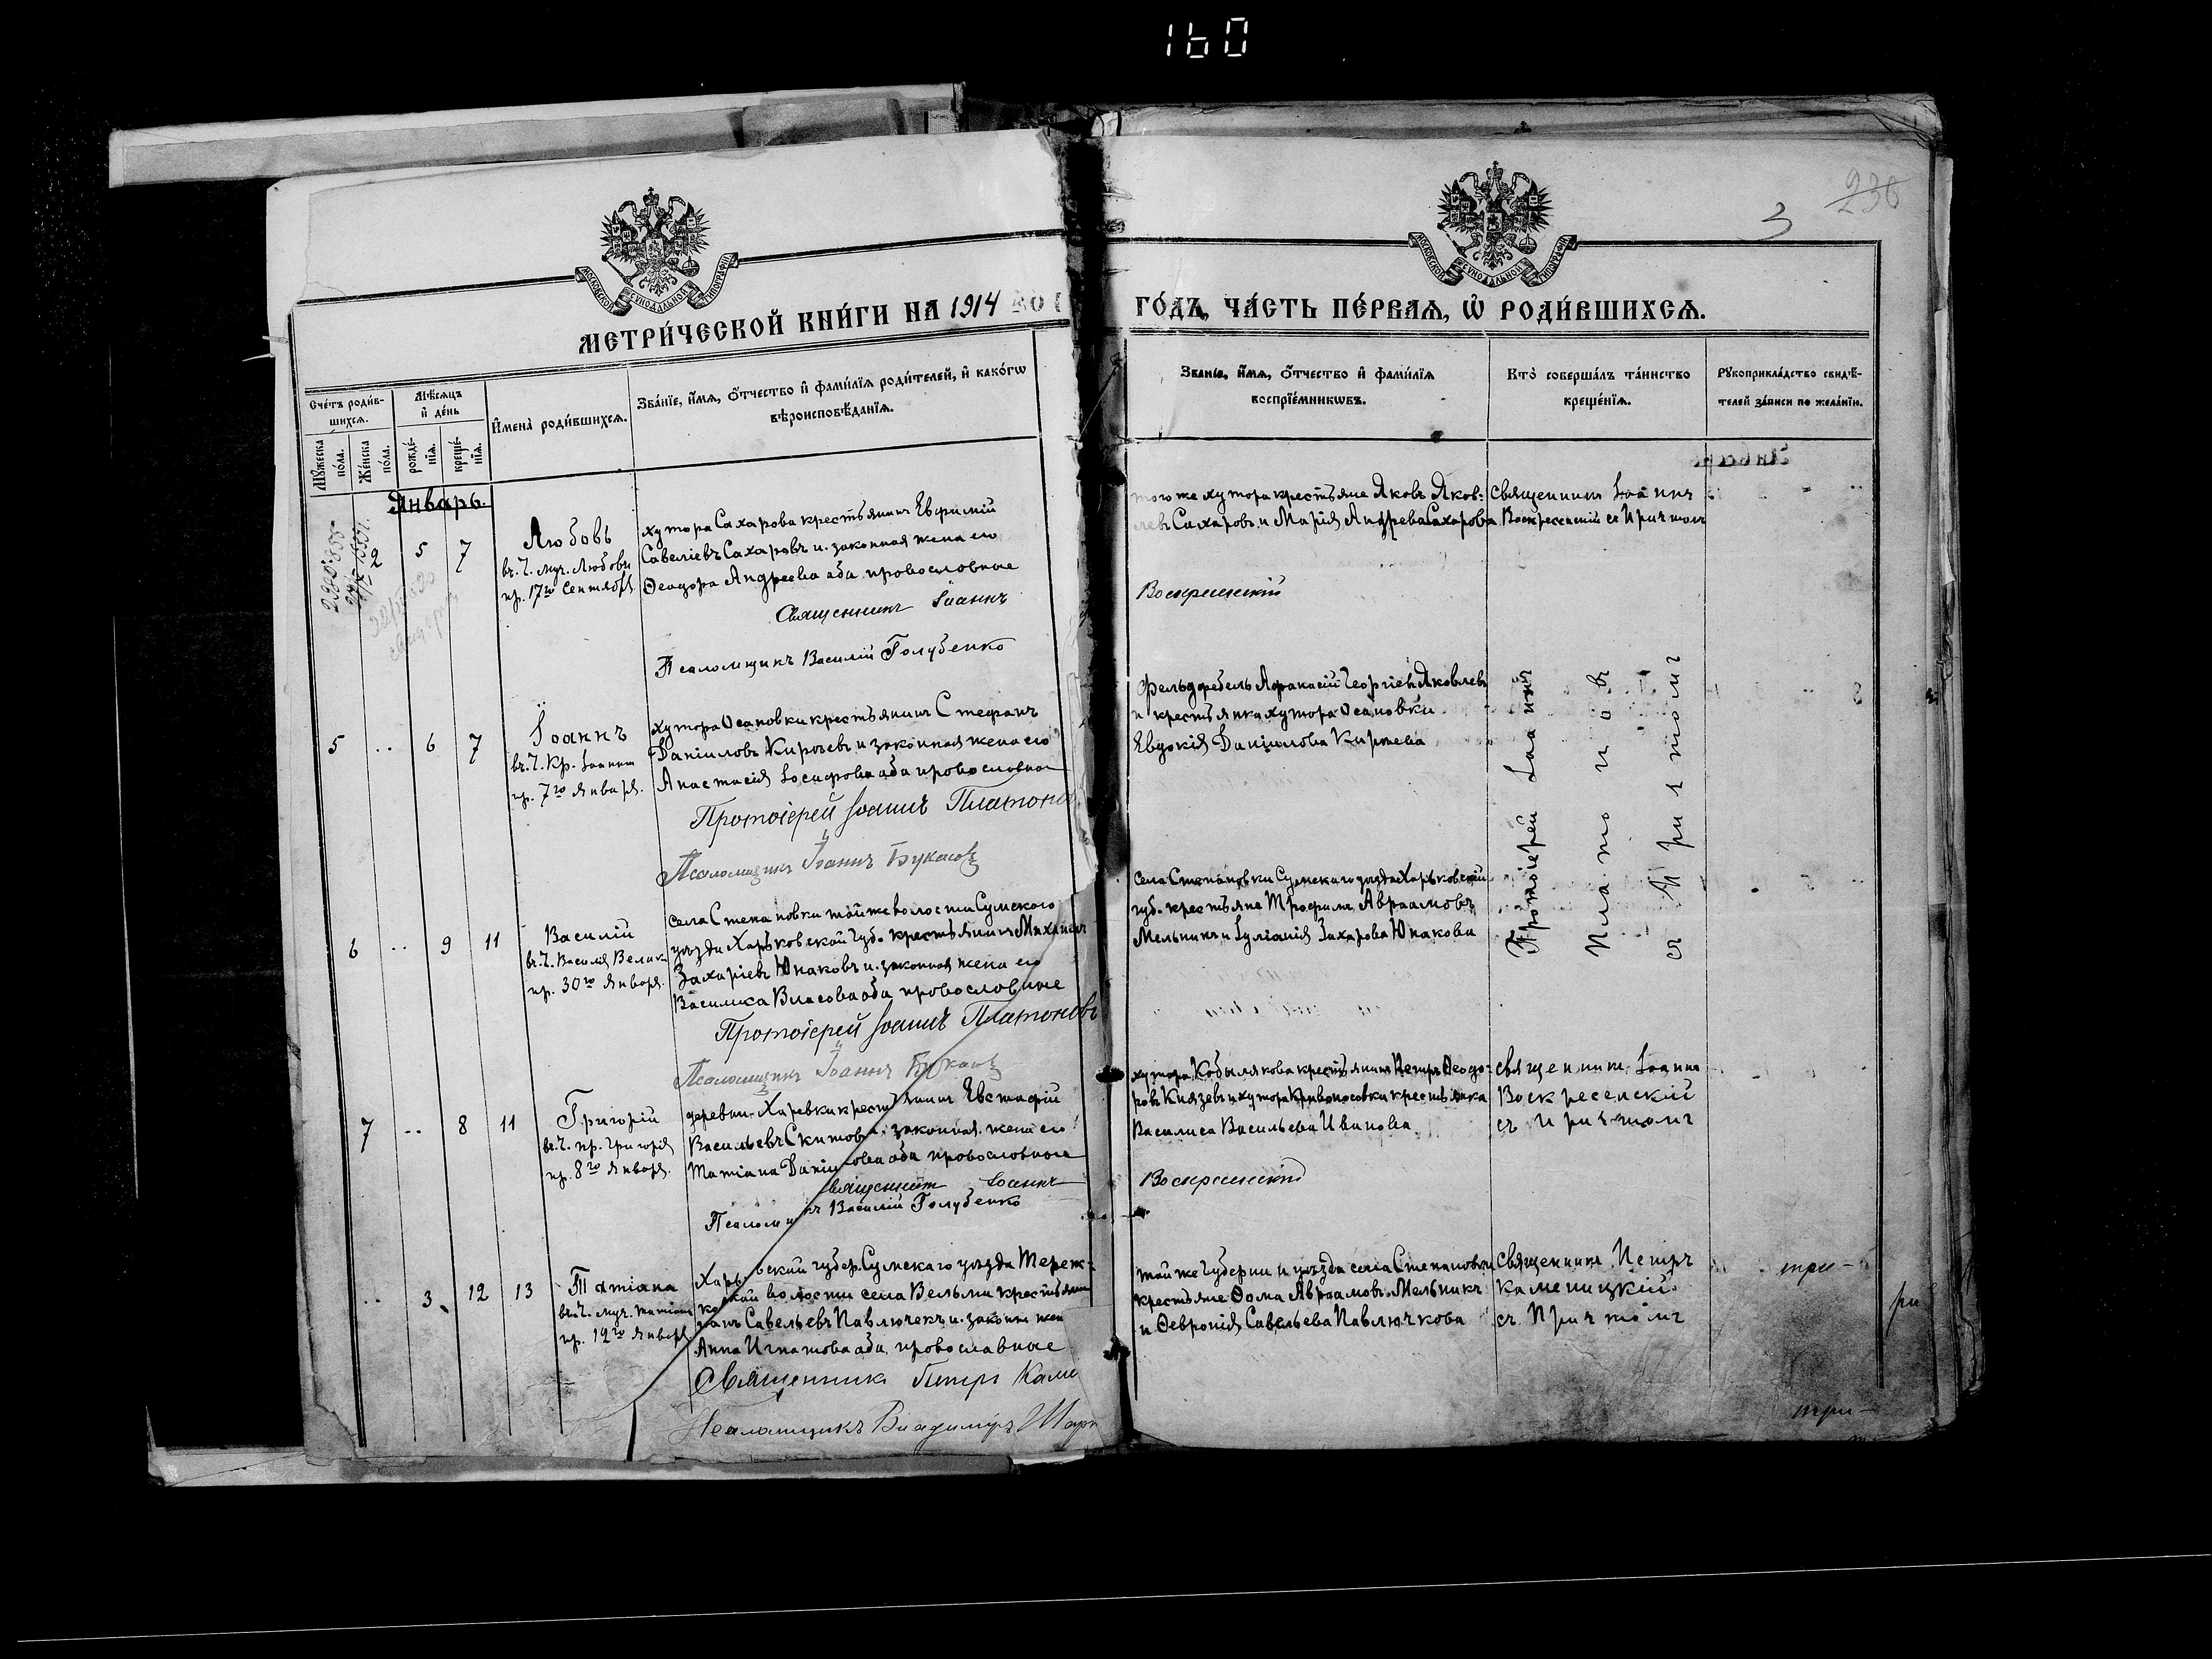 160
236
3
МОСКОВСКОЙ СѴНОДАЛЬНОЙ ТИПОГРАФІИ
МОСКОВСКОЙ СѴНОДАЛЬНОЙ ТИПОГРАФІИ
МЕТРИ́ЧЕСКОЙ КНИ́ГИ НА 1914
ГО́ДЪ, ЧА́СТЬ ПЕ́РВАѦ, Ѡ҆ РОДИ́ВШИХСѦ.
Сче́тъ роди́в-
шихсѧ.
Мꙋ́жеска по́ла.
Же́нска по́ла.
Мѣ́сѧцъ и҆ де́нь
рожде́нїѧ.
креще́нїѧ.
И҆мена̀ роди́вшихсѧ.
Зва́нїе, и҆́мѧ, ѻ҆́тчество и҆ фами́лїѧ роди́телей, и҆ како́гѡ
вѣроисповѣ́данїѧ.
Зва́нїе, и҆́мѧ, ѻ҆́тчество и҆ фами́лїѧ
воспрїе́мникѡвъ.
Кто̀ соверша́лъ та́инство
креще́нїѧ.
Рꙋкоприкла́дство свидѣ́-
телей за́писи по жела́нїю.
Январь.
2
5
7
Любовь
въ ч. муч. Любови
пр. 17го Сентября
хутора Сахарова крестьянинъ Евфимій
Савеліевъ Сахаровъ и законная жена его
Ѳеодора Андреева оба православные
Священникъ Іоаннъ
Воскресенскій
Псаломщикъ Василій Голубенко
того же хутора крестьяне Яковъ Яков-
левъ Сахаровъ и Марія Андреева Сахарова
Священникъ Іоаннъ
Воскресенскій съ Причтомъ
5
..
6
7
Іоаннъ
въ ч. Кр. Іоанна
пр. 7го Января.
хутора Осановки крестьянинъ Стефанъ
Даніиловъ Кирѣевъ и законная жена его
Анастасія Іосифова оба православные
Протоіерей Іоаннъ Платонов
Псаломщикъ Іоаннъ Букасовъ
Фельдфебель Аѳанасій Георгіевъ Яковлевъ
и крестьянка хутора Осановки
Евдокія Даніилова Кирѣева
Протоіерей Іоаннъ
Платоновъ
съ Причтомъ
6
..
9
11
Василій
въ ч. Василія Велик
пр. 30го Января.
села Степановки той же волости Сумскаго
уѣзда Харьковской губ. крестьянинъ Михаилъ
Захаріевъ Юнаковъ и законная жена его
Василиса Власова оба православные
Протоіерей Іоаннъ Платоновъ
Псаломщикъ Іоаннъ Букасовъ
села Степановки Сумскаго уѣзда Харьковской
губ. крестьяне Трофимъ Авраамовъ
Мельникъ и Іуліанія Захарова Юнакова
7
..
8
11
Григорій
въ ч. пр. Григорія
пр. 8го Января.
деревни Харевки крестьянинъ Евстафій
Васильевъ Скитовъ и законная жена его
Татіана Даніилова оба православные
Священникъ Іоаннъ
Воскресенскій
Псаломщикъ Василій Голубенко
хутора Кобылякова крестьянинъ Петръ Ѳеодо-
ровъ Князевъ и хутора Кривоносовки крестьянка
Василиса Васильева Иванова
Священникъ Іоаннъ
Воскресенскій
съ Причтомъ
..
3
12
13
Татіана
въ ч. муч. Татіаны
пр. 12го Января
Харьковской губер. Сумскаго уѣзда Тереш-
ковской волости села Вельмы крестьянин
Савельевъ Павлюченъ и законн жен
Анна Игнатова оба православные
Священникъ Петръ Каме
Псаломщикъ Владиміръ
той же Губерніи и уѣзда села Степановки
крестьяне Ѳома Авраамовъ Мельникъ
и Ѳевронія Савельева Павлючкова
Священникъ Петръ
Каменицкій
съ Причтомъ
три-
три-